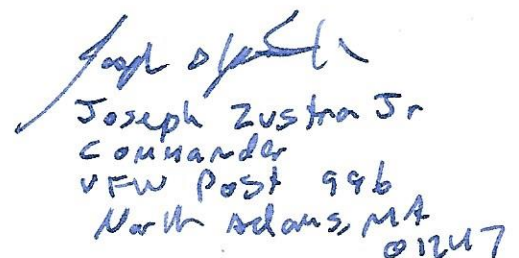 Joseph Zustra Jr
Commander
VFW Post 996
North Adams, MA
01247